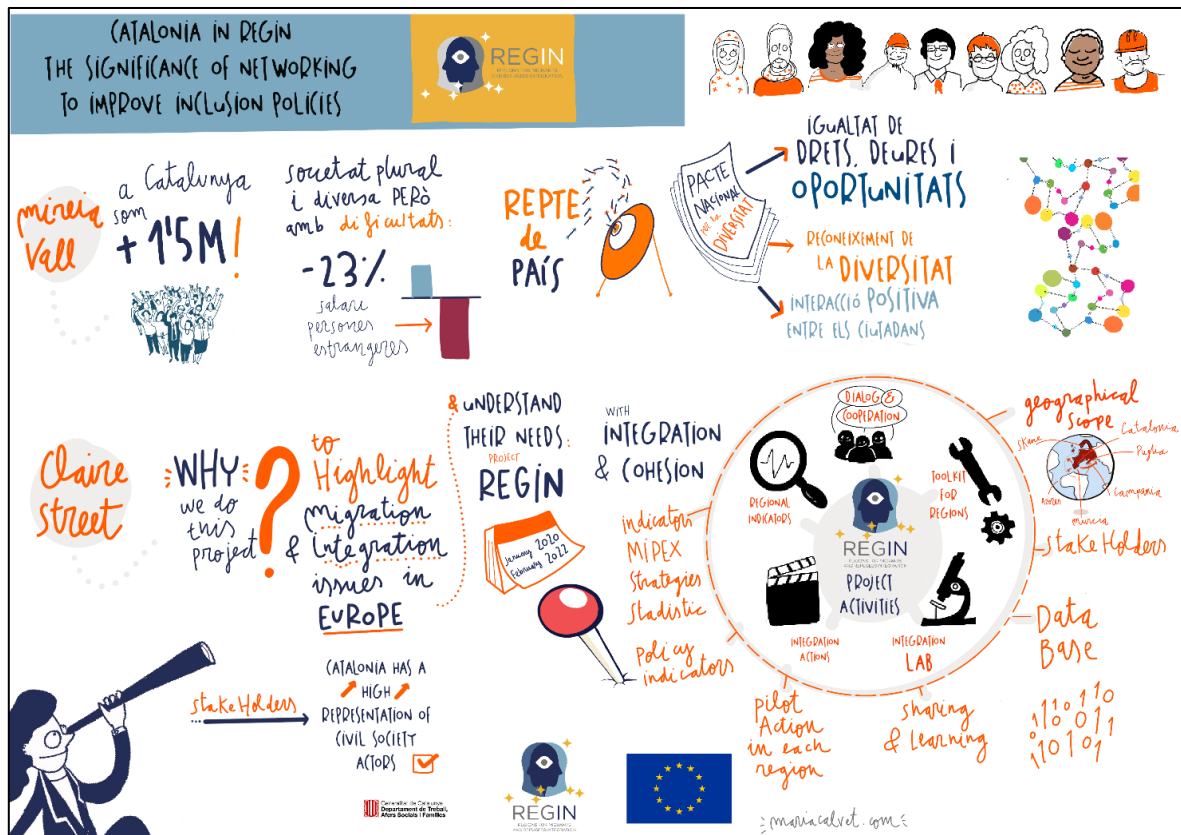 CATALONIA IN REGIN
THE SIGNIFICANCE OF NETWORKING
TO IMPROVE INCLUSION POLICIES
REGIN
mireia
Vall
a Catalunya
som
+1'5M!
societat plural
i diversa PERÒ
amb dificultats:
-23%
salari
persones
estrangeres
REPTE
de
PAÍS
PACTE
NACIONAL
per la
DIVERSITAT
IGUALTAT DE
DRETS, DEURES I
OPORTUNITATS
RECONEIXEMENT DE
LA DIVERSITAT
INTERACCIÓ POSITIVA
ENTRE ELS CIUTADANS
Claire
Street
WHY
we do
this
project
?
to
Highlight
migration
& Integration
issues in
EUROPE
& UNDERSTAND
THEIR NEEDS:
PROJECT
REGIN
January 2020
February 2022
WITH
INTEGRATION
& COHESION
DIALOG &
COOPERATION
REGIONAL
INDICATORS
TOOLKIT
FOR
REGIONS
REGIN
PROJECT
ACTIVITIES
INTEGRATION
ACTIONS
INTEGRATION
LAB
indicators
MIPEX
Strategies
Stadistic
policy
indicators
pilot
Action
in each
region
sharing
& Learning
Data
Base
1 0 1 1 0
stakeHolders
geographical
scope
Skane
Catalonia
Puglia
Campania
murcia
Azores
stakeHolders
CATALONIA HAS A
HIGH
REPRESENTATION OF
CIVIL SOCIETY
ACTORS
Generalitat de Catalunya
Departament de Treball,
Afers Socials i Famílies
REGIN
mariacalvet.com